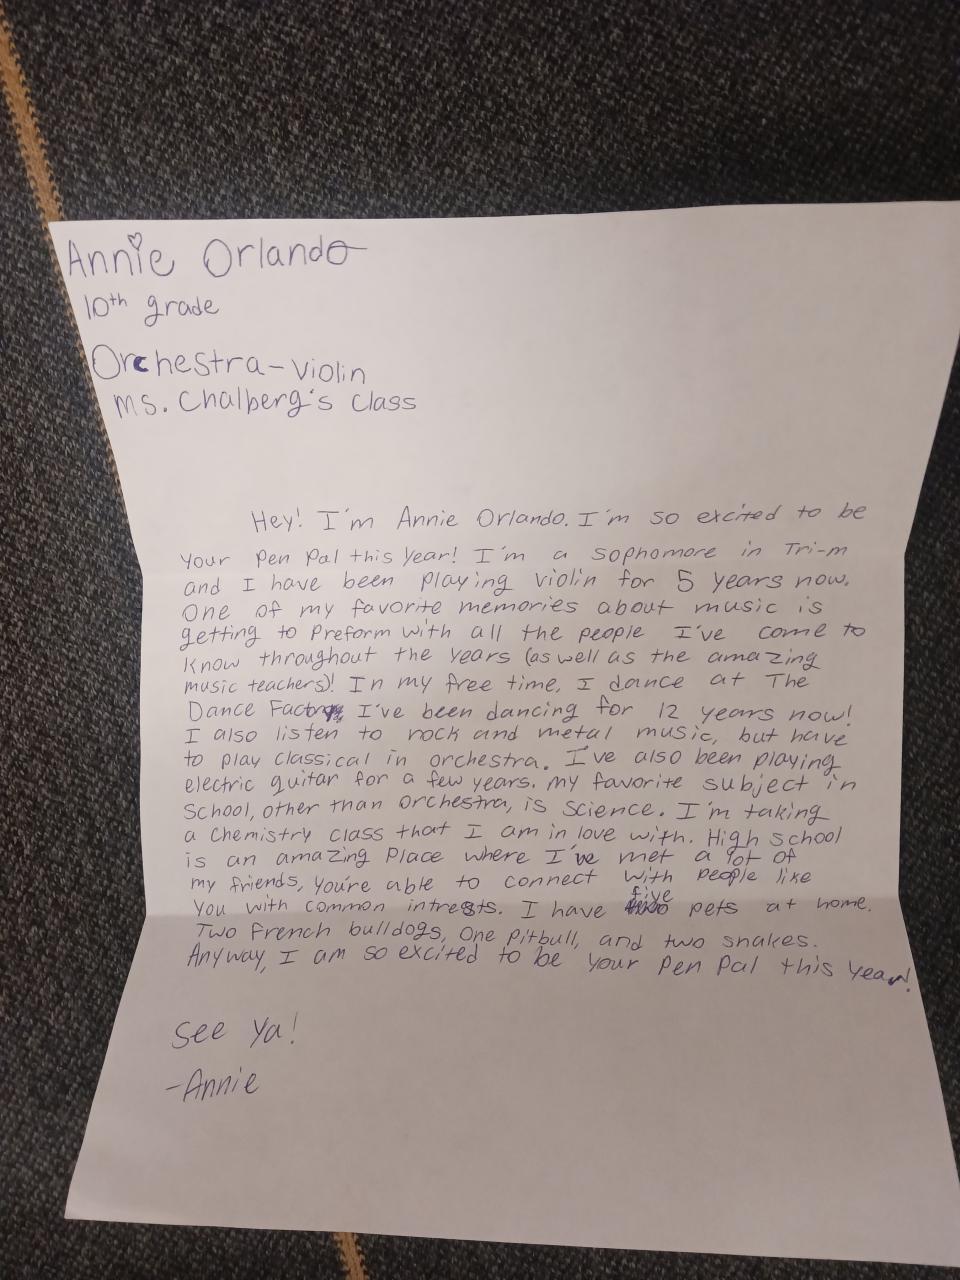 Annie Orlando
10th grade
Orchestra - violin
Ms. Chalberg's class
Hey! I'm Annie Orlando. I'm so excited to be
your pen pal this year! I'm a sophomore in Tri-m
and I have been playing violin for 5 years now.
One of my favorite memories about music is
getting to preform with all the people I've come to
know throughout the years (as well as the amazing
music teachers)! In my free time, I dance at The
Dance Factory. I've been dancing for 12 years now!
I also listen to rock and metal music, but have
to play classical in orchestra. I've also been playing
electric guitar for a few years. my favorite subject in
school, other than orchestra, is science. I'm taking
a chemistry class that I am in love with. High school
is an amazing place where I've met a lot of
my friends, you're able to connect with people like
you with common intrests. I have five pets at home.
Two french bulldogs, one pitbull, and two snakes.
Anyway, I am so excited to be your pen pal this year!
see ya!
-Annie